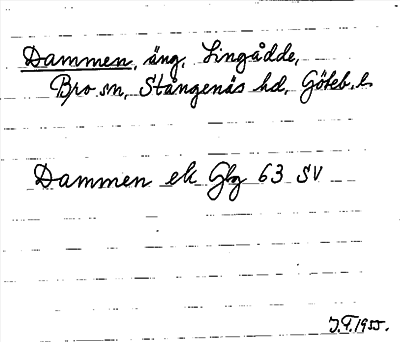 Dammen, äng, Lingådde,
Bro sn, Stångenäs hd, Göteb. l.
Dammen ek Gbg 63 SV
J.F. 1955.